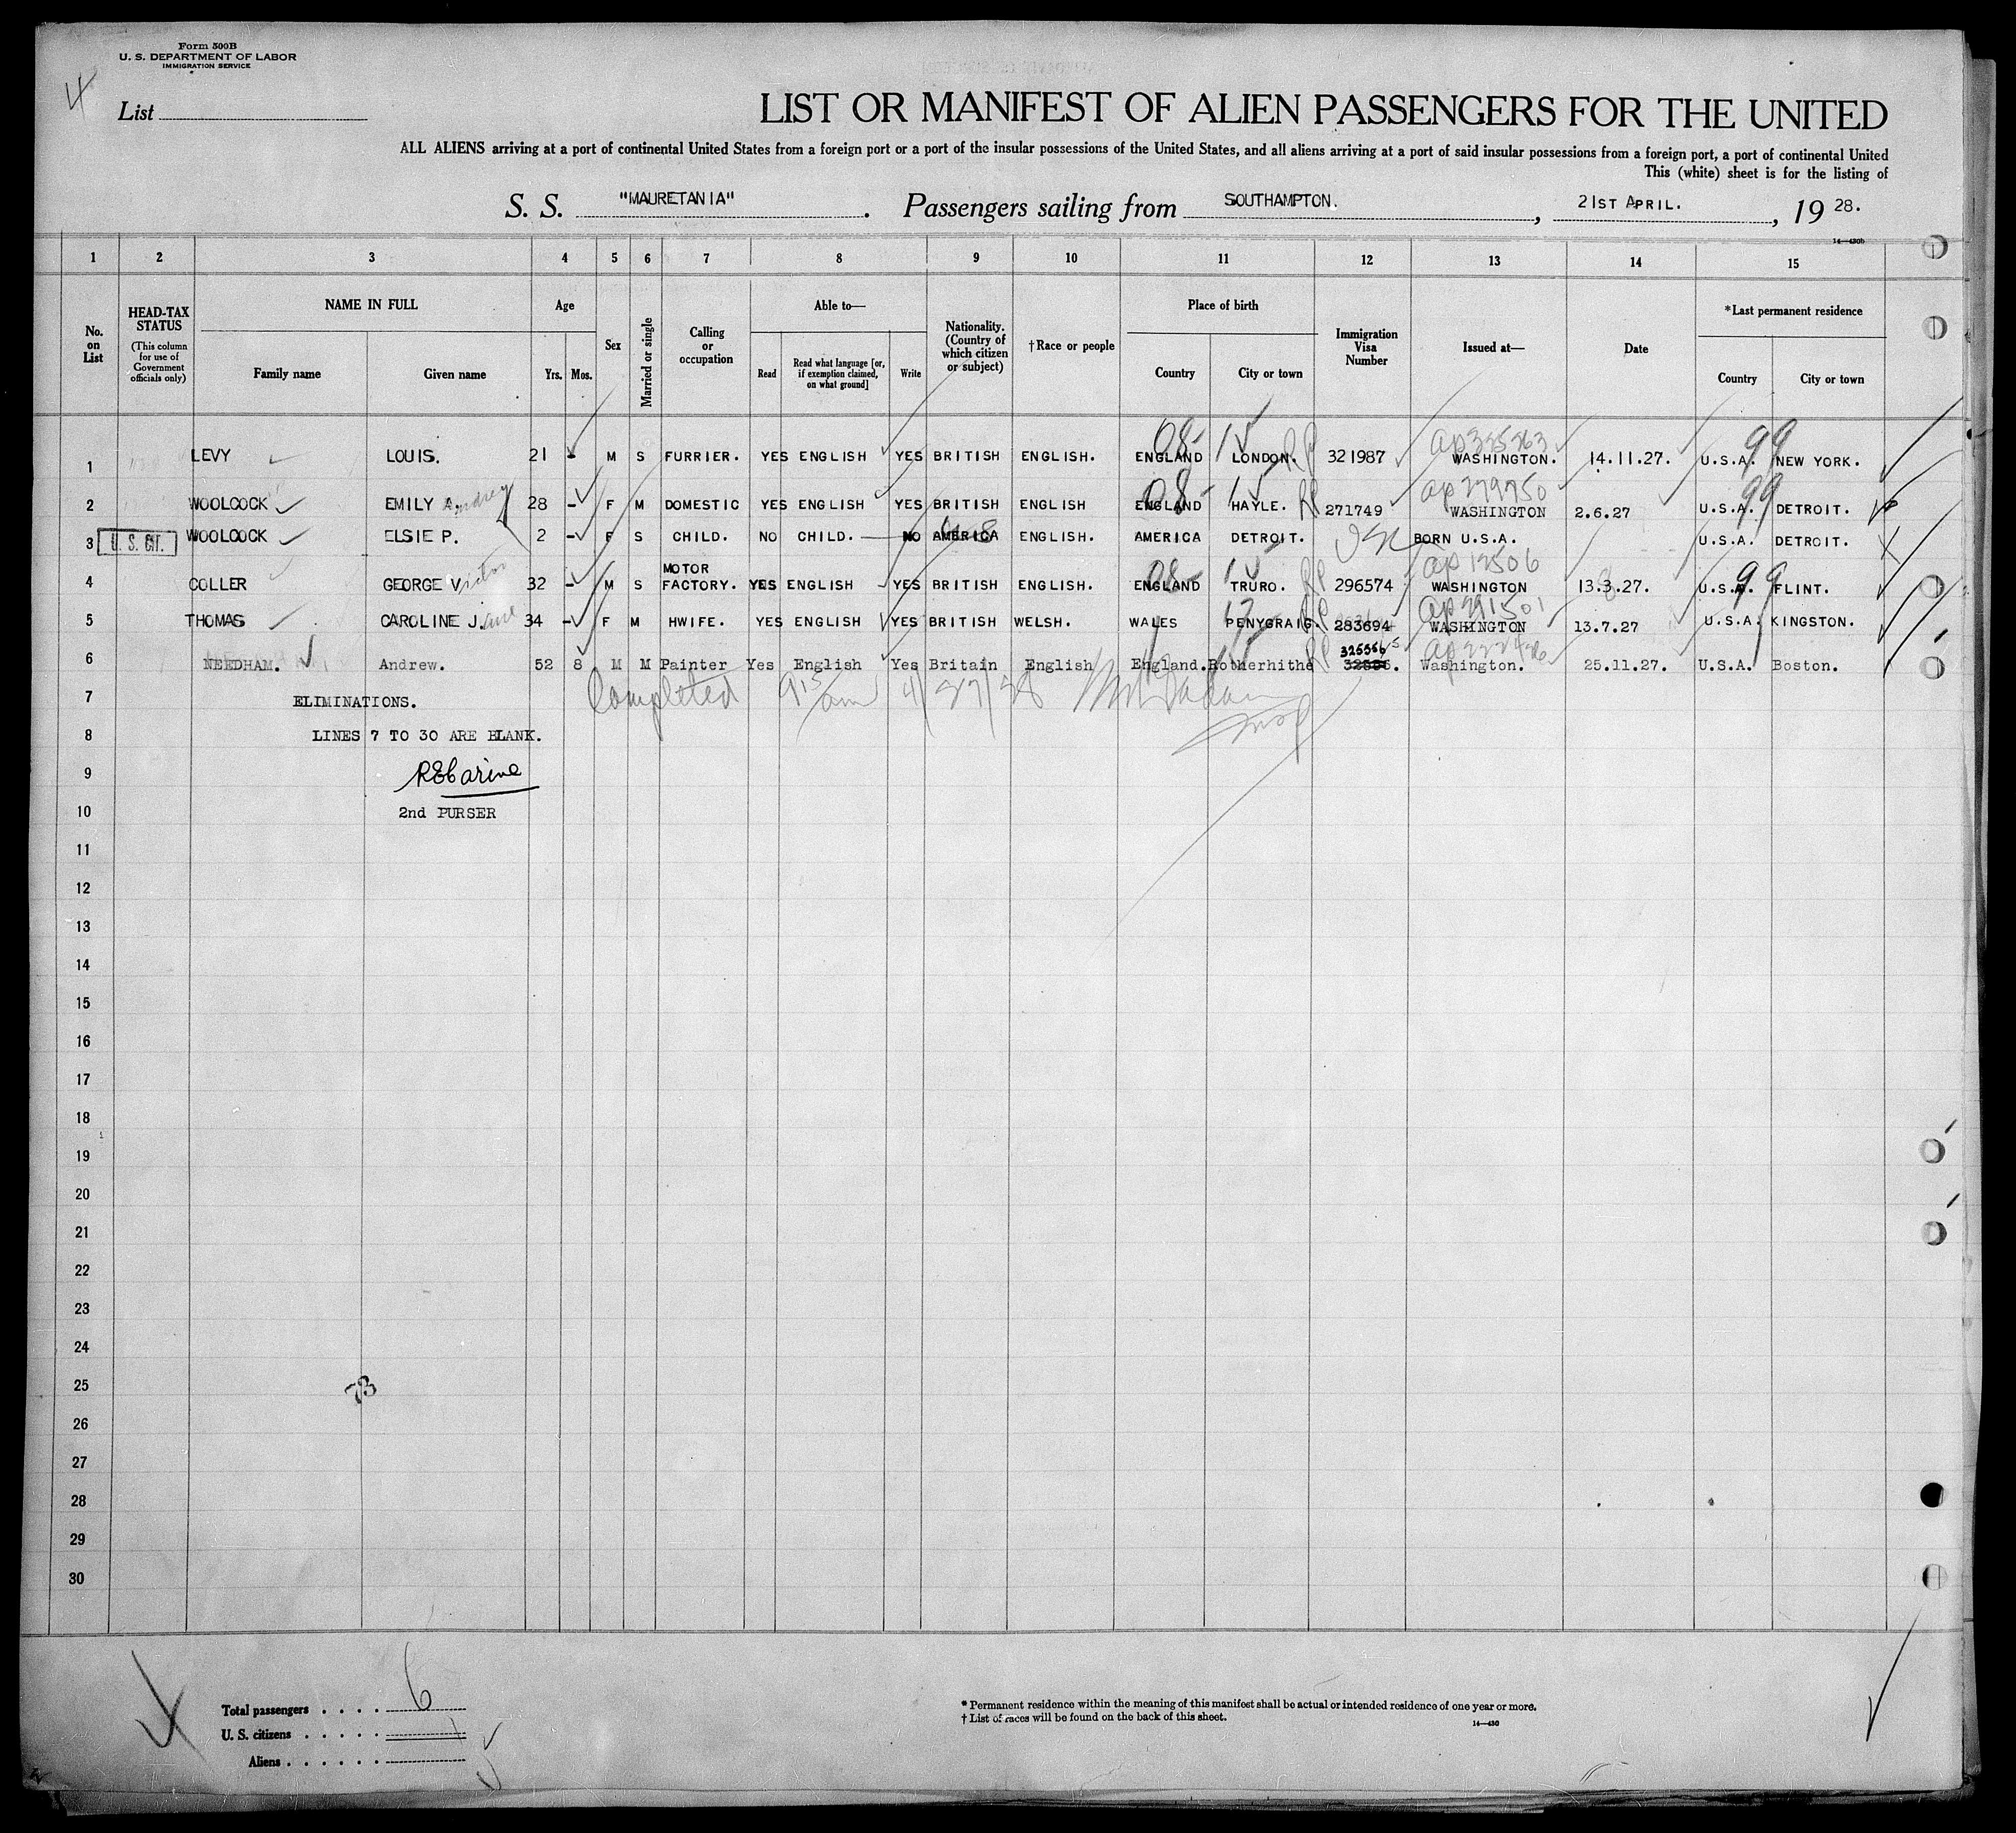 Form 500B
U. S. DEPARTMENT OF LABOR
IMMIGRATION SERVICE
4
List
LIST OR MANIFEST OF ALIEN PASSENGERS FOR THE UNITED
ALL ALIENS arriving at a port of continental United States from a foreign port or a port of the insular possessions of the United States, and all aliens arriving at a port of said insular possessions from a foreign port, a port of continental United
This (white) sheet is for the listing of
S. S. "MAURETANIA". Passengers sailing from SOUTHAMPTON., 21ST APRIL., 19 28.
14—430b
1 2 3 4 5 6 7 8 9 10 11 12 13 14 15
No. on List
HEAD-TAX STATUS
(This column for use of Government officials only)
NAME IN FULL
Family name
Given name
Age
Yrs. Mos.
Sex
Married or single
Calling or occupation
Able to—
Read
Read what language [or, if exemption claimed, on what ground]
Write
Nationality. (Country of which citizen or subject)
†Race or people
Place of birth
Country
City or town
Immigration Visa Number
Issued at—
Date
*Last permanent residence
Country
City or town
1 LEVY LOUIS. 21 - M S FURRIER. YES ENGLISH YES BRITISH ENGLISH. ENGLAND 08- 15 LONDON. RP 321987 WASHINGTON. 14.11.27. U.S.A. 99 NEW YORK.
2 WOOLCOCK EMILY A. 28 - F M DOMESTIC YES ENGLISH YES BRITISH ENGLISH ENGLAND 08- 15 HAYLE. RP 271749 ap 279750 WASHINGTON 2.6.27 U.S.A. 99 DETROIT.
3 U. S. CIT. WOOLCOCK ELSIE P. 2 - F S CHILD. NO CHILD. NO AMERICA ENGLISH. AMERICA DETROIT. USC BORN U.S.A. U.S.A. DETROIT.
4 COLLER GEORGE Victor 32 - M S MOTOR FACTORY. YES ENGLISH YES BRITISH ENGLISH. ENGLAND 08- 15 TRURO. RP 296574 ap 12506 WASHINGTON 13.3.27. 8 U.S.A. 99 FLINT.
5 THOMAS CAROLINE Jane 34 - F M HWIFE. YES ENGLISH YES BRITISH WELSH. WALES PENYGRAIG. RP 283694 ap 291501 WASHINGTON 13.7.27 U.S.A. KINGSTON.
6 NEEDHAM. Andrew. 52 8 M M Painter Yes English Yes Britain English England. Rotherhithe RP 325556 Washington. 25.11.27. U.S.A. Boston.
7 ELIMINATIONS. Completed 9 15/am 4/27/28
8 LINES 7 TO 30 ARE BLANK.
9
10 2nd PURSER
11
12
13
14
15
16
17
18
19
20
21
22
23
24
25
26
27
28
29
30
Total passengers . . . . 6
U. S. citizens . . . . . 1
Aliens . . . . . . 5
* Permanent residence within the meaning of this manifest shall be actual or intended residence of one year or more.
† List of races will be found on the back of this sheet.
14—430